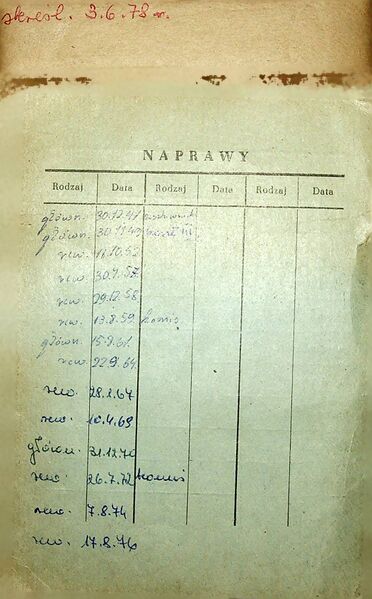 skreśl. 3.6.78 r.
NAPRAWY
Rodzaj Data Rodzaj Data Rodzaj Data
główn. 30.12.47
główn. 30.11.49
rew. 11.10.52
rew. 30.7.57
rew. 29.12.58
rew. 13.8.59
główn. 15.9.61
rew. 22.9.64
rew. 28.1.67
rew. 10.4.69
główn. 31.12.70
rew. 26.7.72
rew. 7.8.74
rew. 17.8.76